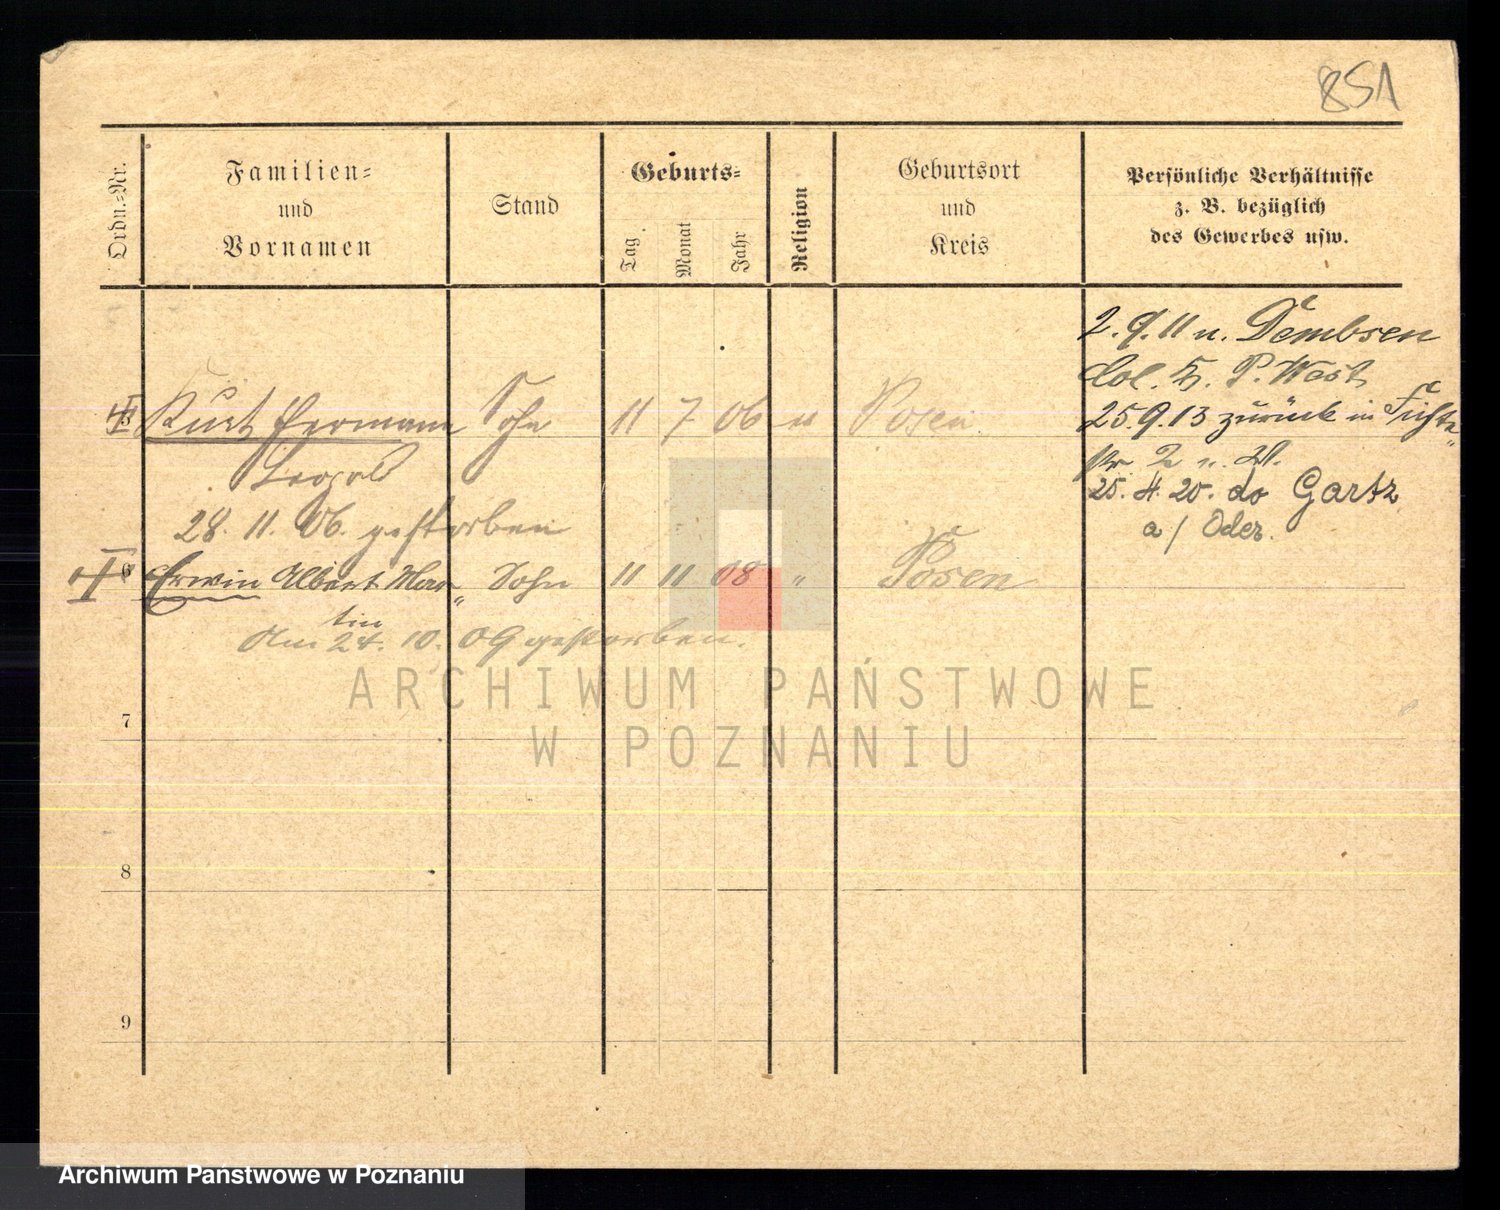 851
Ordn.-Nr.
Familien-
und
Vornamen
Stand
Geburts-
Tag
Monat
Jahr
Religion
Geburtsort
und
Kreis
Persönliche Verhältnisse
z. B. bezüglich
des Gewerbes usw.
2. 9. 11 n. Dembsen
Col. P. West
25. 9. 13 zurück in
5 Kurt Hermann Sohn 11 7 06 Posen
28. 11. 06. gestorben
25. 4. 20. do Gartz
a/ Oder.
6 Erwin Albert Mar„ Sohn 11 11 08 „ Posen
tin
Am 24. 10. 09 gestorben.
ARCHIWUM PAŃSTWOWE
W POZNANIU
7
8
9
Archiwum Państwowe w Poznaniu